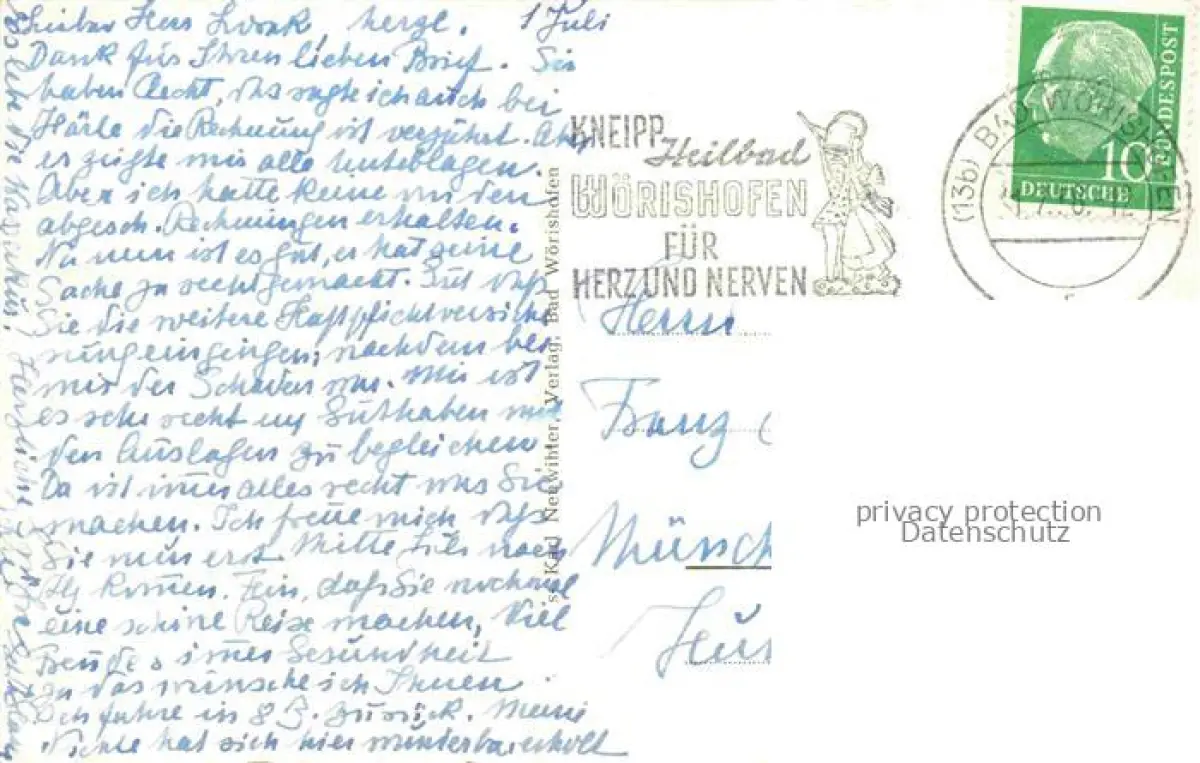 Lieber Herr
herzl.
1 Juli
Dank für Ihren lieben Brief. Sie
haben Recht, das sagte ich auch bei
Härle die Rechnung ist verjährt. Aber
er zeigte mir alle Unterlagen.
Aber ich hatte keine von den
abgesch. Rechnungen erhalten.
Na nun ist es gut, er hat seine
Sache ja recht gemacht. Gut daß
Sie die weitere Haftpflichtversiche
rung eingingen, nachdem bei
mir der Schaden war. Mir ist
es sehr recht m Guthaben mit
den Auslagen zu begleichen
Da ist immer alles recht was Sie
machen. Ich freue mich daß
Sie nun erst Mitte Juli nach
kommen. Fein, daß Sie nochmal
eine schöne Reise machen, Viel
Freude immer Gesundheit
zu das wünsche ich Ihnen.
Ich fahre in 8 zurück. Meine
Nichte hat sich hier wunderbar erholt
Karl Neuwihler, Verlag, Bad Wörishofen
KNEIPP
Heilbad
WÖRISHOFEN
FÜR
HERZ UND NERVEN
(13b) BAD WÖRISH
10
DEUTSCHE
BUNDESPOST
Herrn
Franz
Münch
privacy protection
Datenschutz